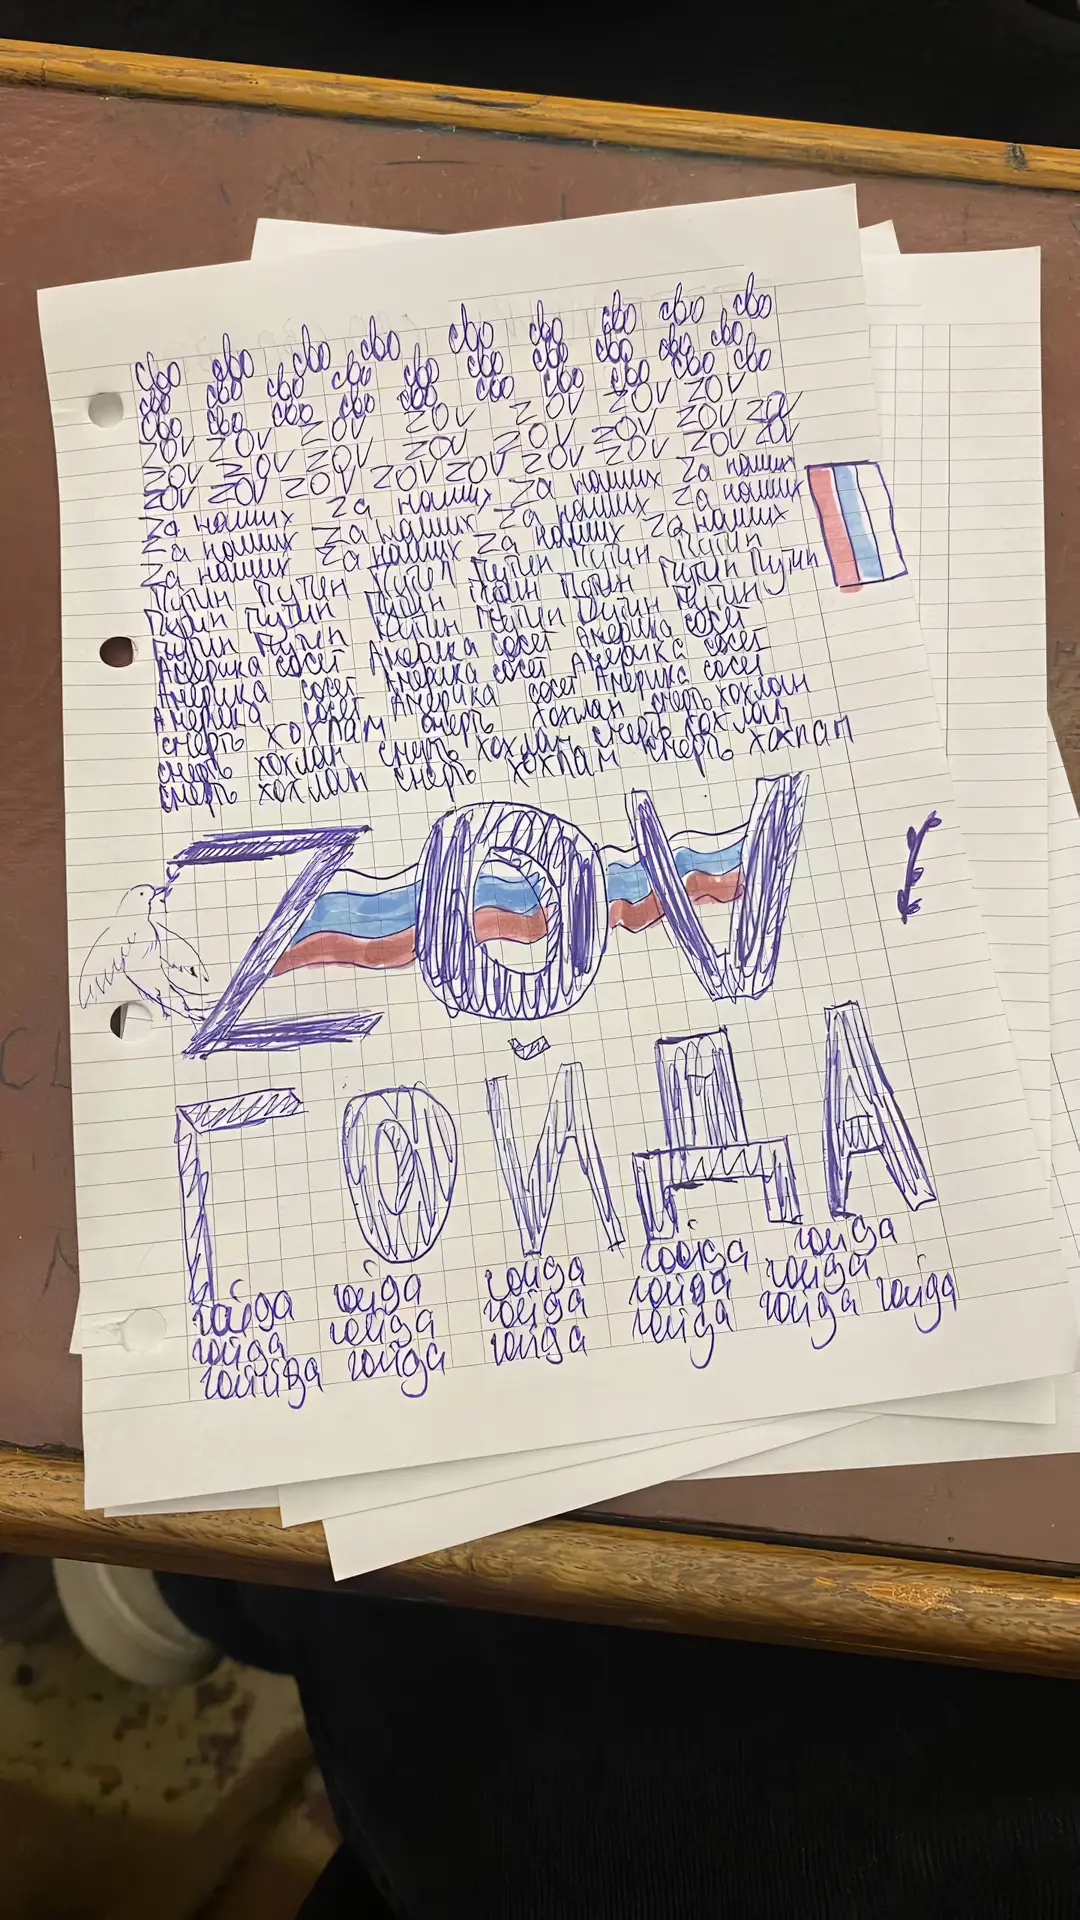 сво сво сво сво сво сво сво сво сво
сво сво сво сво сво сво сво сво сво
сво сво сво сво сво сво сво сво сво
ZOV ZOV ZOV ZOV Z OV ZOV ZOV
ZOV ZOV ZOV ZOV ZOV ZOV ZOV ZOV
ZOV ZOV ZOV ZOV ZOV ZOV ZOV ZOV ZOV
Zа наших Zа наших Zа наших Zа наших
Zа наших Zа наших Zа наших Zа наших
Zа наших Zа наших Zа наших Zа наших
Путин Путин Путин Путин Путин
Путин Путин Путин Путин Путин Путин Путин
Путин Путин Путин Путин Путин Путин
Америка сосёт Америка сосёт Америка сосёт
Америка сосёт Америка сосёт Америка сосёт
Америка сосёт Америка сосёт Америка сосёт
смерть хохлам смерть хохлам смерть хохлам
смерть хохлам смерть хохлам смерть хохлам
смерть хохлам смерть хохлам смерть хохлам
ZOV
ГОЙДА
гойда гойда гойда гойда гойда
гойда гойда гойда гойда гойда
гоййда гойда гойда гойда гойда гойда